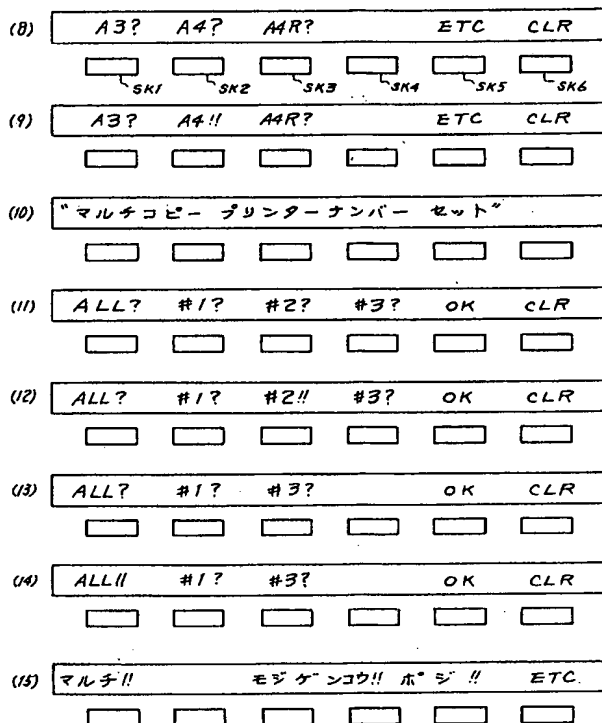 (8) A3? A4? A4R? ETC CLR
SK1 SK2 SK3 SK4 SK5 SK6
(9) A3? A4!! A4R? ETC CLR
(10) "マルチコピー プリンターナンバー セット"
(11) ALL? #1? #2? #3? OK CLR
(12) ALL? #1? #2!! #3? OK CLR
(13) ALL? #1? #3? OK CLR
(14) ALL!! #1? #3? OK CLR
(15) マルチ!! モジゲンコウ!! ポジ!! ETC.